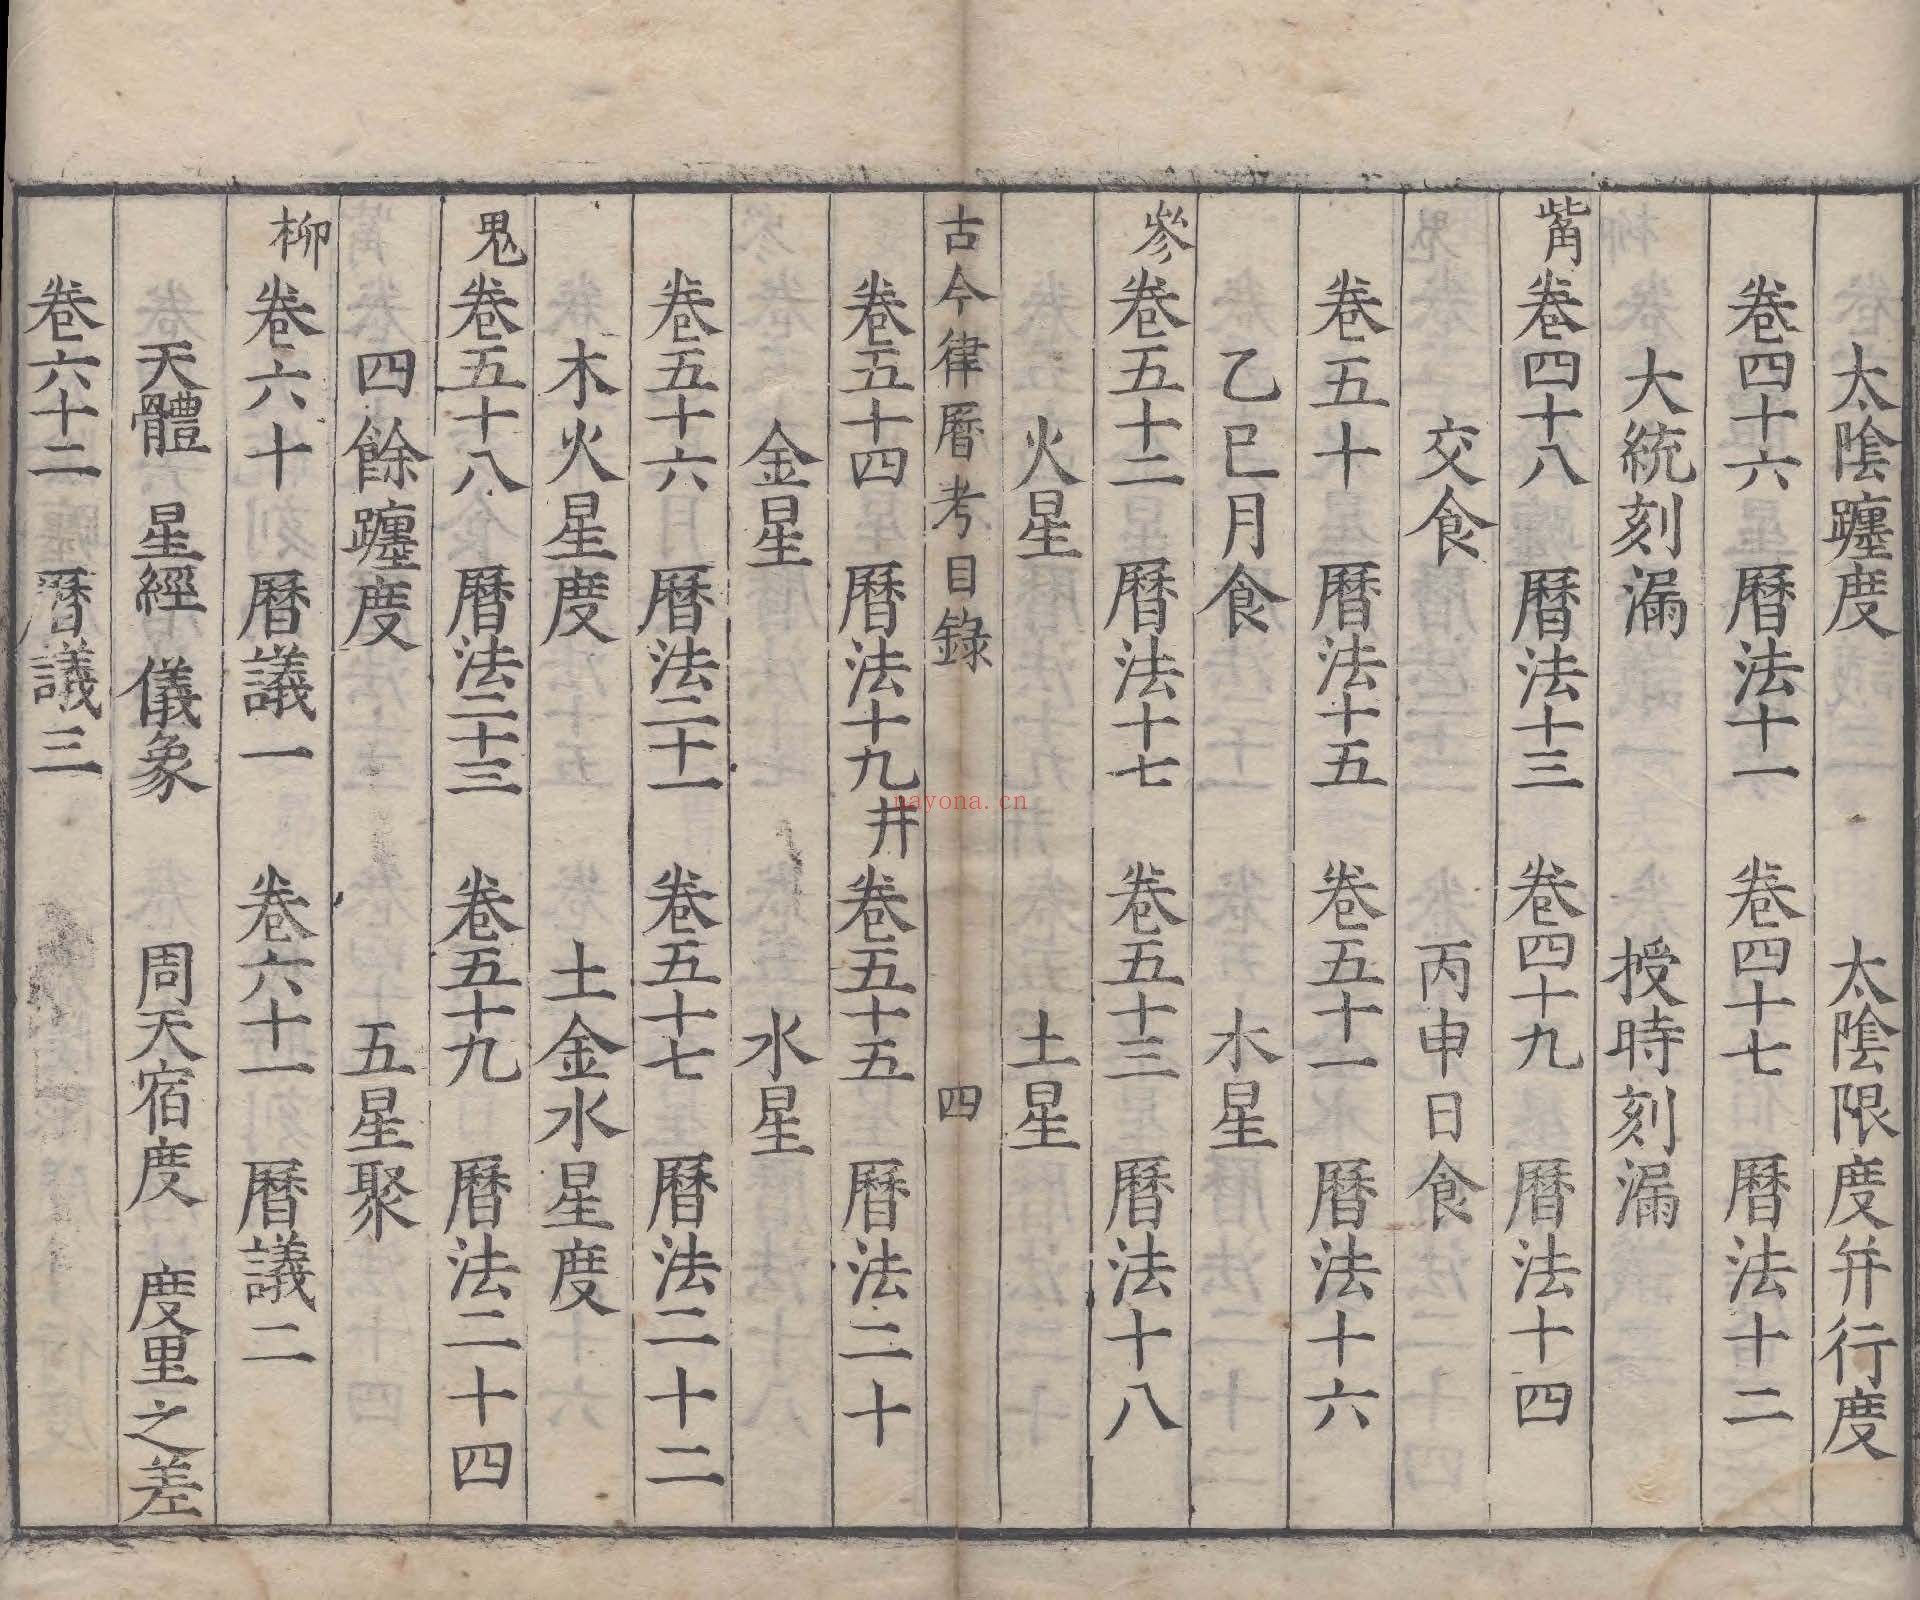 太陰躔度　太陰限度并行度
卷四十六　曆法十一　卷四十七　曆法十二
大統刻漏　授時刻漏
觜　卷四十八　曆法十三　卷四十九　曆法十四
交食　丙申日食
卷五十　曆法十五　卷五十一　曆法十六
乙巳月食　木星
參　卷五十二　曆法十七　卷五十三　曆法十八
火星　土星
古今律曆考目錄　四
卷五十四　曆法十九　井　卷五十五　曆法二十
金星　水星
卷五十六　曆法二十一　卷五十七　曆法二十二
木火星度　土金水星度
鬼　卷五十八　曆法二十三　卷五十九　曆法二十四
四餘躔度　五星聚
柳　卷六十　曆議一　卷六十一　曆議二
天體　星經　儀象　周天宿度　度里之差
卷六十二　曆議三
nayona.cn